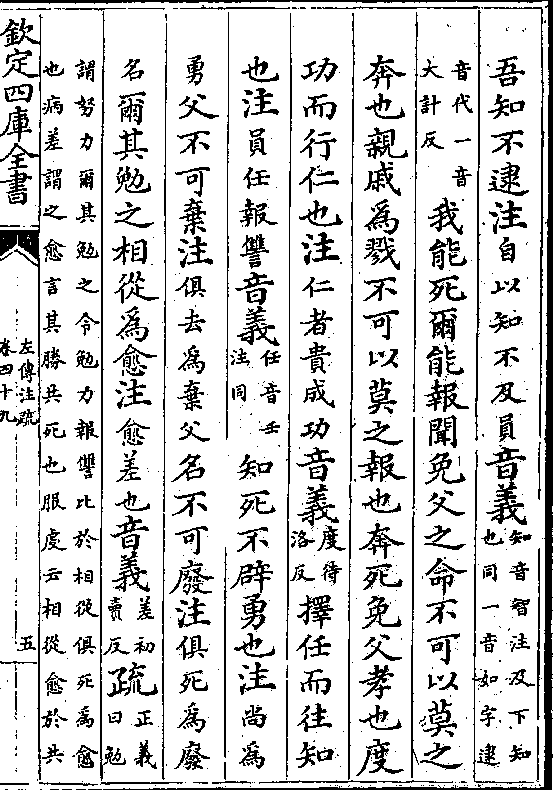 吾知不逮注自以知不及員音義知音智注及下知
也同一音如字逮
音代一音
大計反
我能死爾能報聞免父之命不可以莫之
奔也親戚為戮不可以莫之報也奔死免父孝也度
功而行仁也注仁者貴成功音義度待
洛反
擇任而往知
也注員任報讐音義任音壬
注同
知死不辟勇也注尚為
勇父不可棄注俱去為棄父名不可廢注俱死為廢
名爾其勉之相從為愈注愈差也音義差初
賣反
疏正義
曰勉
謂努力爾其勉之令勉力報讐比於相從俱死為愈
也病差謂之愈言其勝共死也服虔云相從愈於共
欽定四庫全書
左傳注疏
卷四十九
五